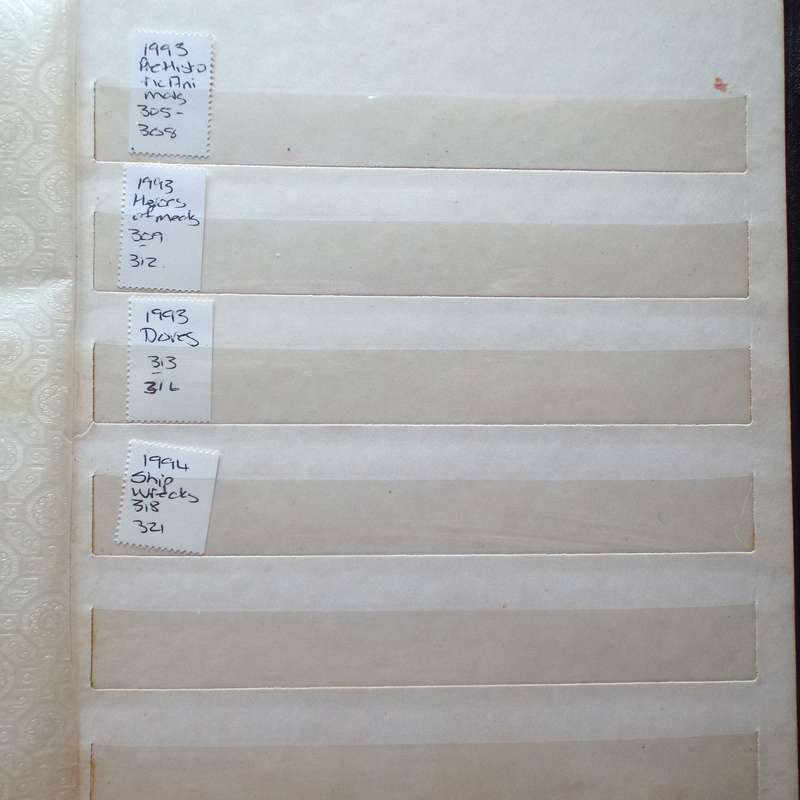 1993
PreHisto
ric Ani
mals
305-
308
1993
of meds
309
-
312.
1993
Doves
313
-
316
1994
Ship
Wrecks
318
321